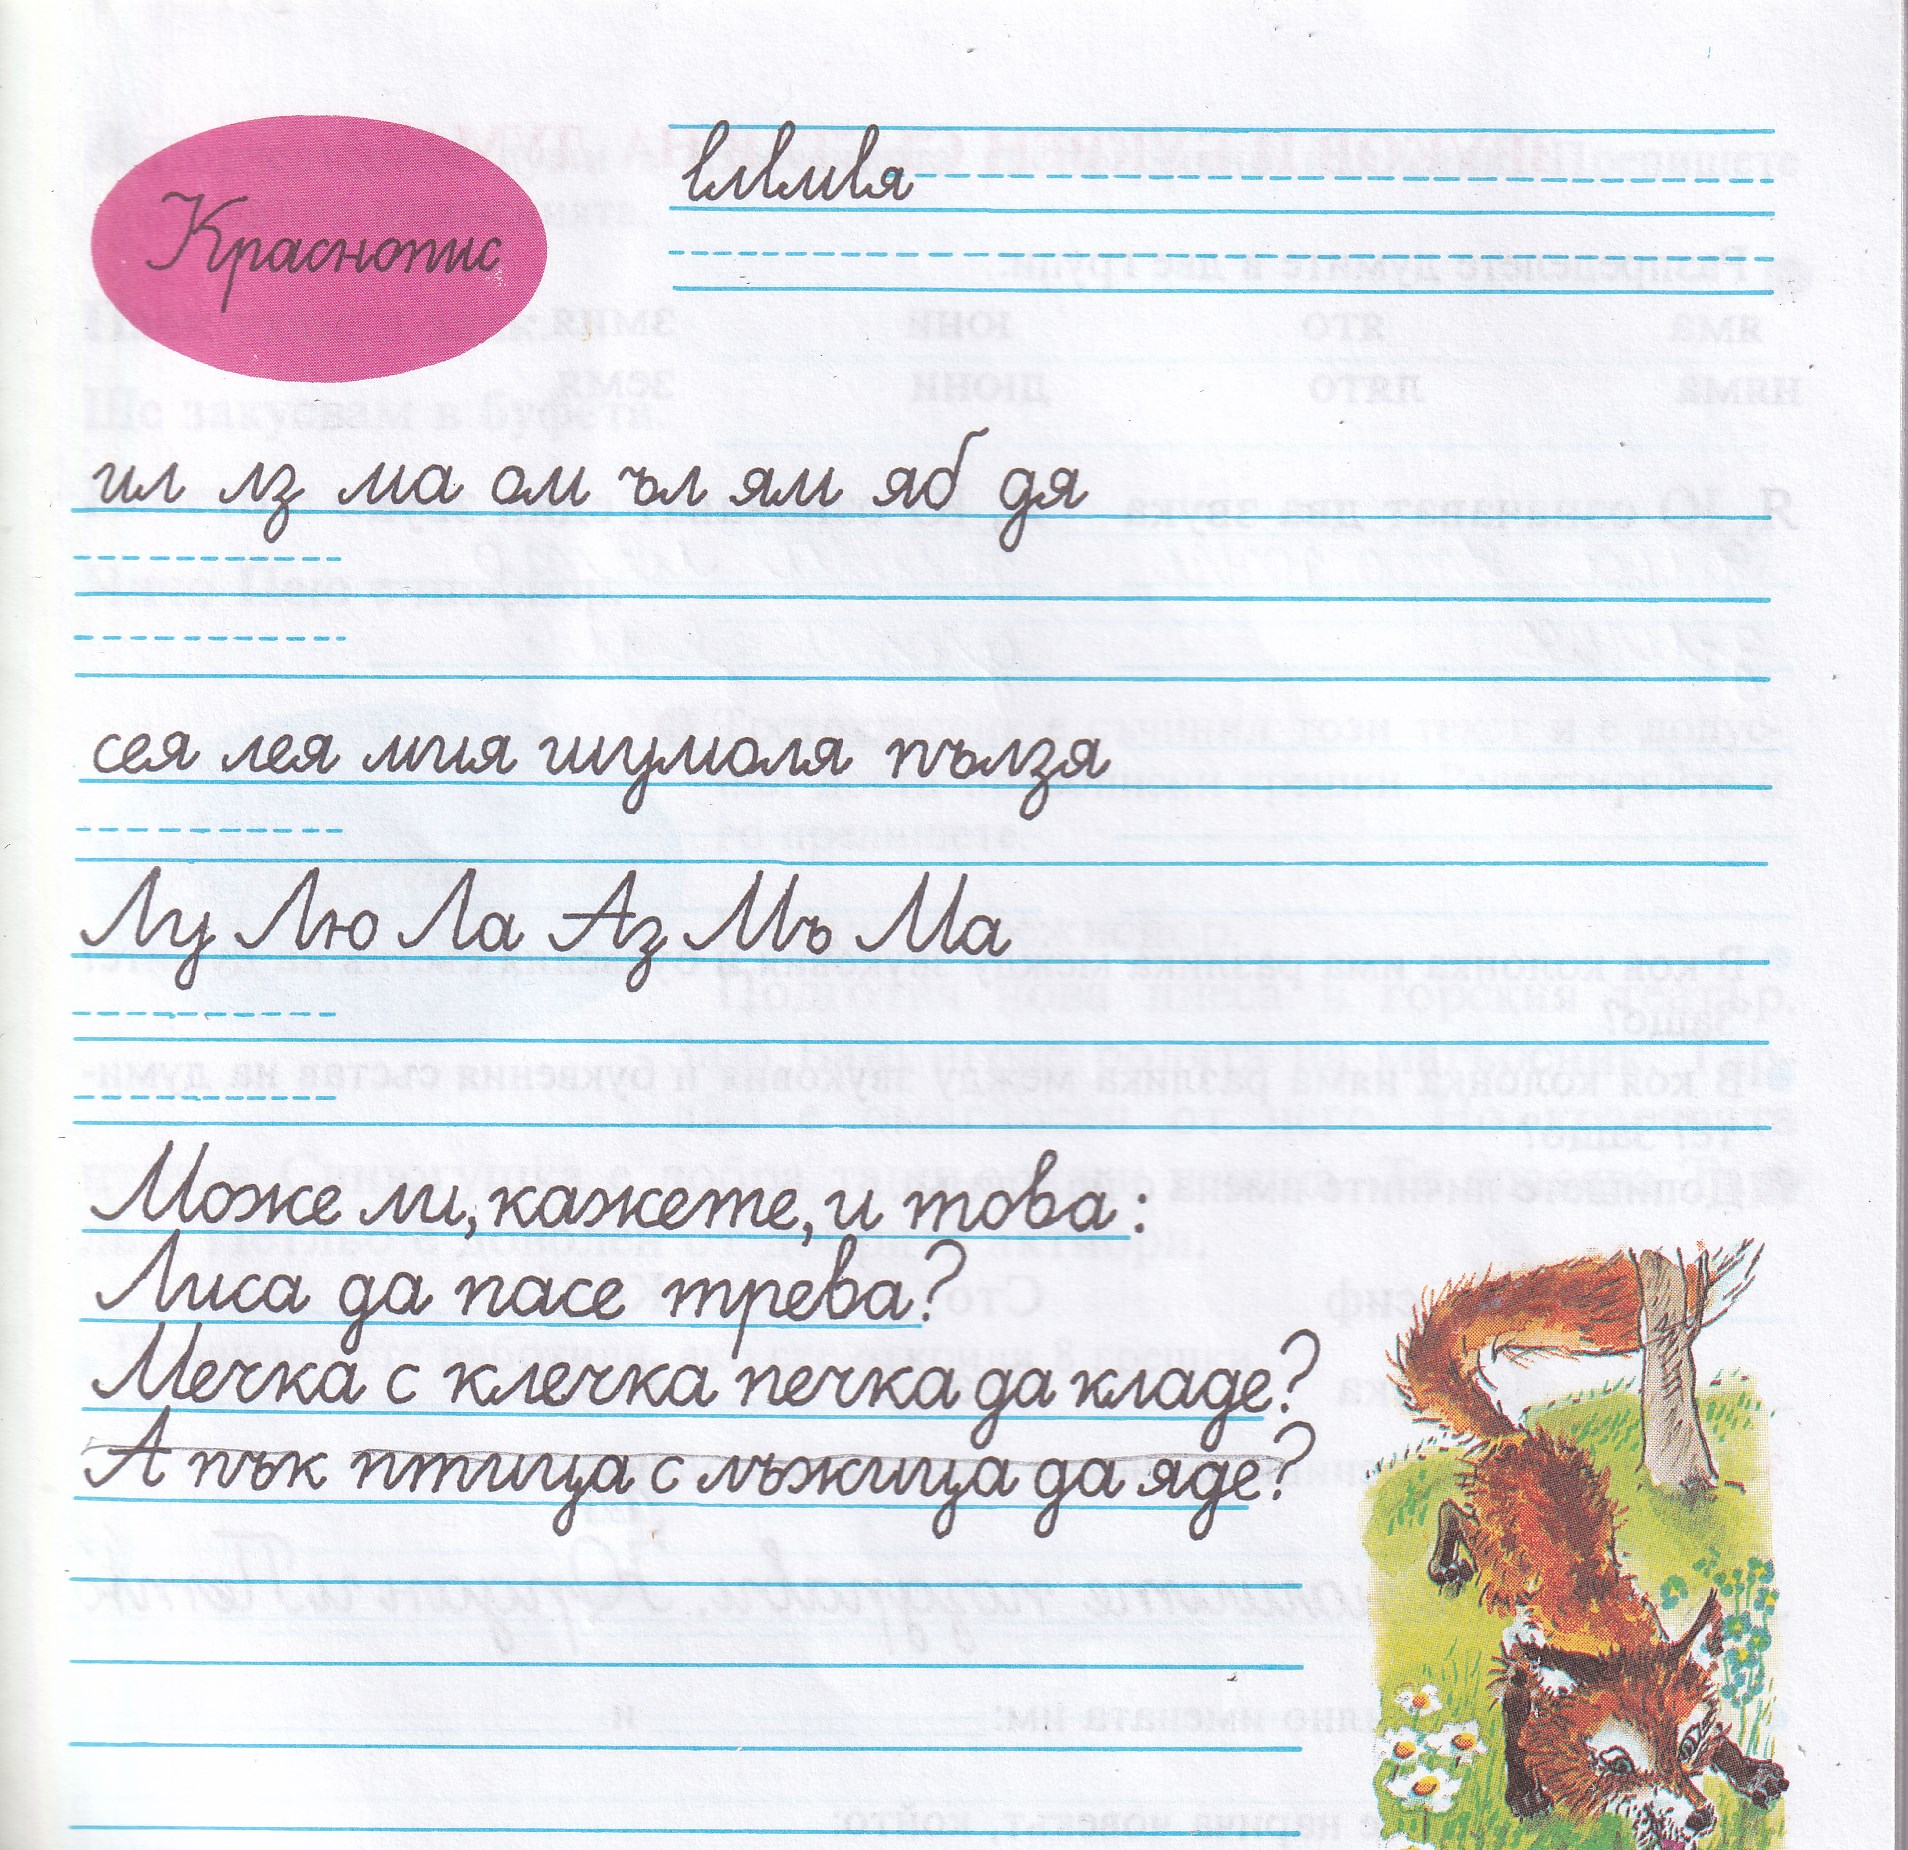 Краснопис
влвмвя
ил лз ма ом ъл ям яб дя
сея лея мия шумоля пълзя
Лу Лю Ла Аз Мъ Ма
Може ли, кажете, и това:
Лиса да пасе трева?
Мечка с клечка печка да кладе?
А пък птица с лъжица да яде?